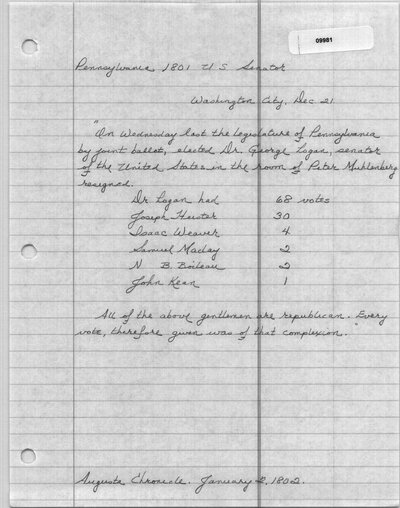 09981
Pennsylvania 1801 U S Senator
Washington City, Dec 21
"On Wednesday last the legislature of Pennsylvania
by joint ballot, elected Dr. George Logan, senator
of the United States in the room of Peter Muhlenberg
resigned.
Dr. Logan had 68 votes
Joseph Heister 30
Isaac Weaver 4
Samuel Maclay 2
N B. Boileau 2
John Kean 1
All of the above gentlemen are republican. Every
vote, therefore given was of that complexion."
Augusta Chronicle. January 2, 1802.